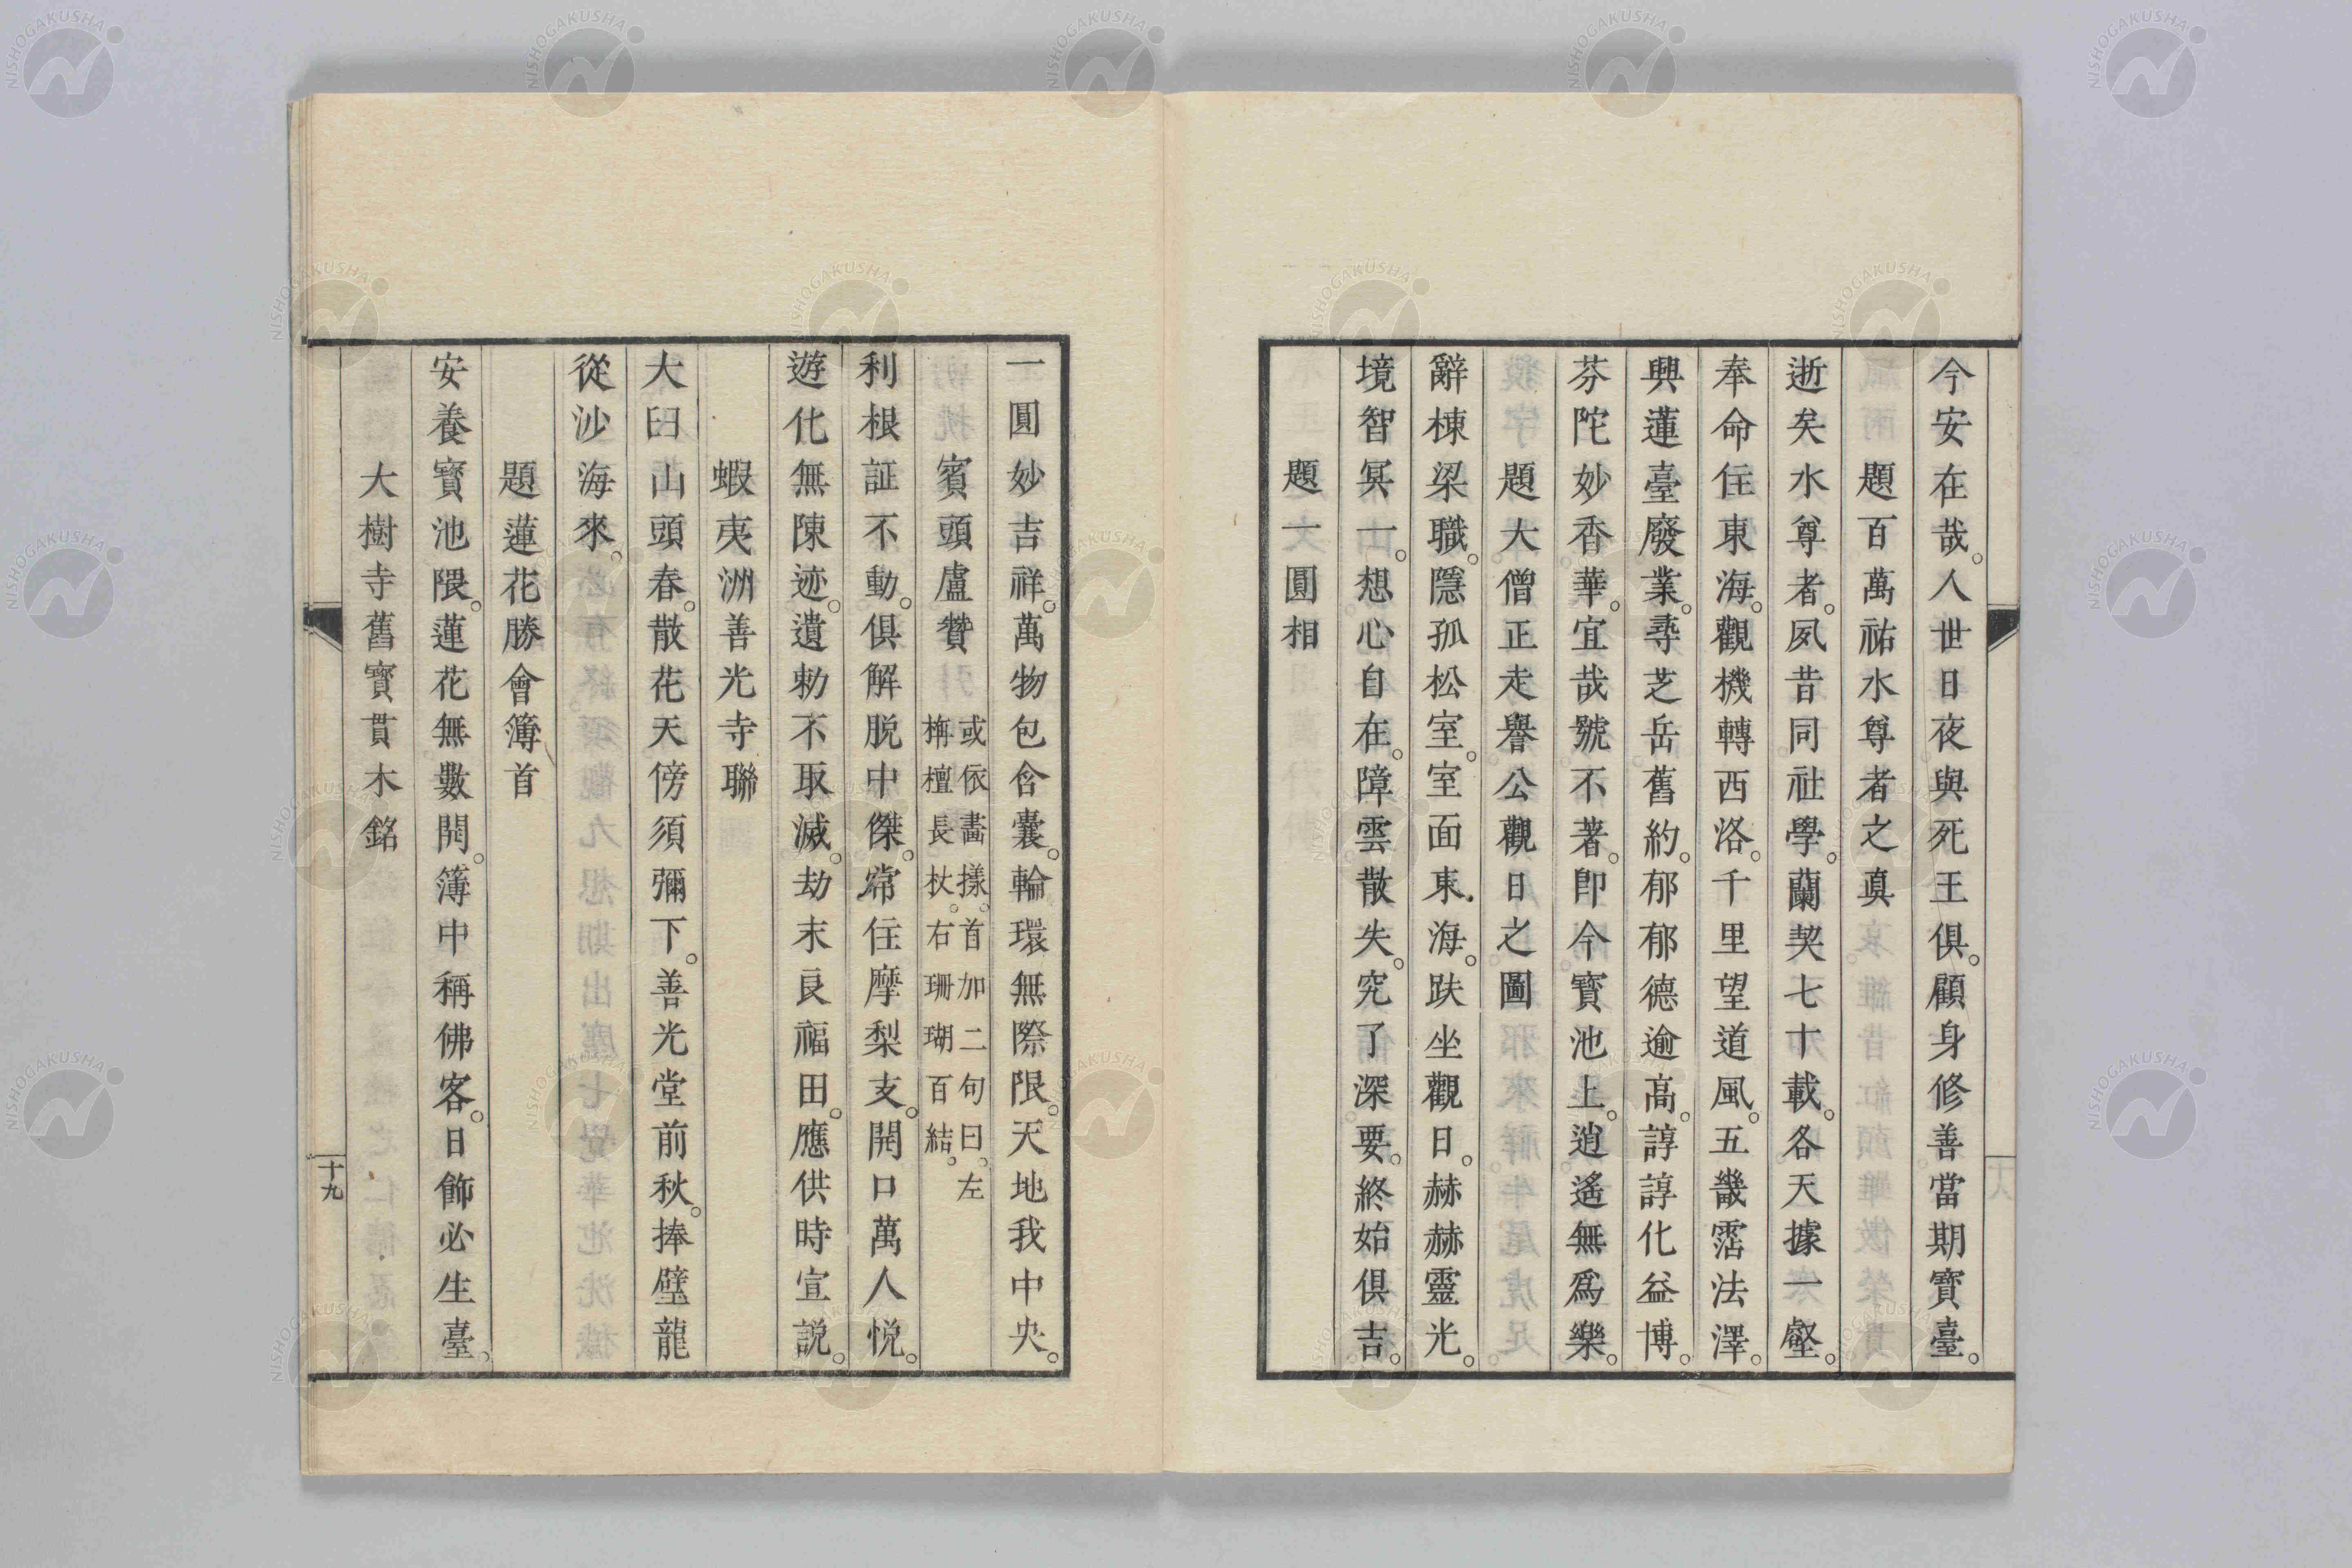 今安在哉。人世日夜與死王俱。顧身修善當期寶臺。
題百萬祐水尊者之真
逝矣水尊者。夙昔同社學。蘭契七十載。各天據一壑。
奉命住東海。觀機轉西洛。千里望道風。五畿霑法澤。
興蓮臺廢業。尋芝岳舊約。郁郁德逾高。諄諄化益博。
芬陀妙香華。宜哉號不著。即今寶池上。逍遙無爲樂。
題大僧正走譽公觀日之圖
辭棟梁職。隱孤松室。室面東海。趺坐觀日。赫赫靈光。
境智冥一。想心自在。障雲散失。究了深要。終始俱吉。
題一圓相
一圓妙吉祥。萬物包含囊。輪環無際限。天地我中央。
賓頭盧贊 或依畵樣。首加二句曰。左栴檀長杖。右珊瑚百結。
利根証不動。俱解脱中傑。常住摩梨支。開口萬人悦。
遊化無陳迹。遺勅不取滅。劫末良福田。應供時宣説。
蝦夷洲善光寺聯
大臼山頭春。散花天傍須彌下。善光堂前秋。捧璧龍
從沙海來。
題蓮花勝會簿首
安養寶池隈。蓮花無數開。簿中稱佛客。日飾必生臺。
大樹寺舊寶貫木銘
十九
NISHOGAKUSHA